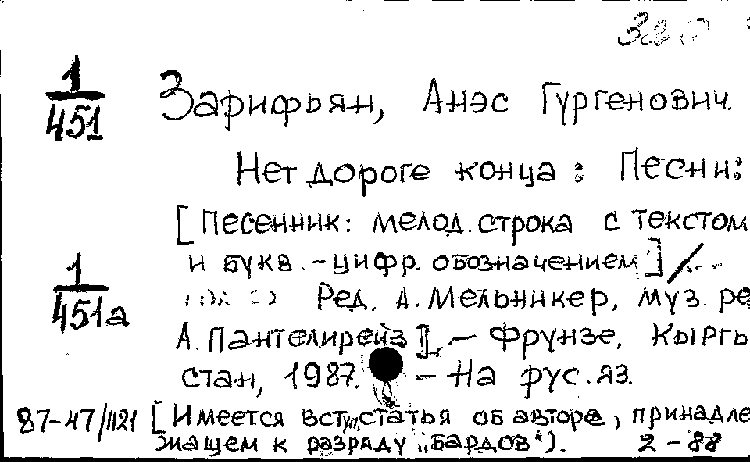 1/451 Зарифьян, Анэс Гургенович
Нет дороге конца: Песни:
[Песенник: мелод. строка с текстом
и букв.-цифр. обозначением] /
1/451а Ред. А. Мельникер, муз. ре
А. Пантелирейз]. – Фрунзе, Кыргы
стан, 1987. – На рус. яз.
87-47/1121 [Имеется вст. статья об авторе, принадле
жащем к разряду „бардов").  2-88